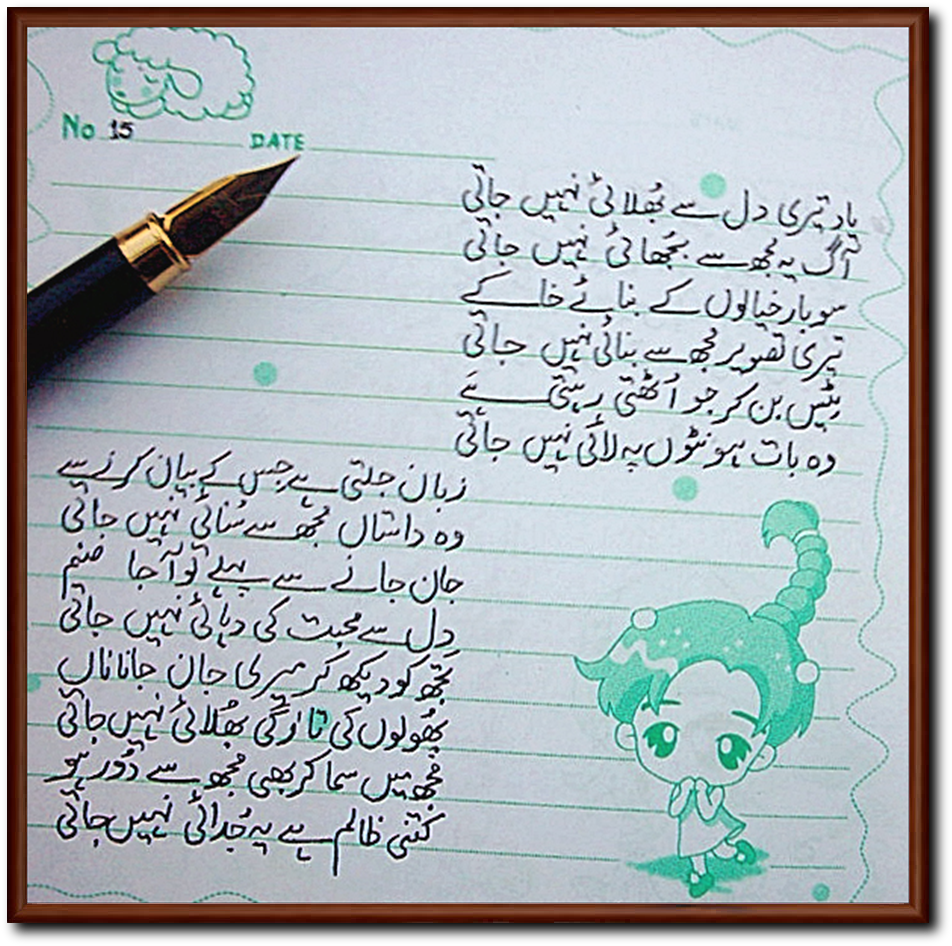 No 15
DATE
یاد تیری دل سے بُھلائی نہیں جاتی
آگ یہ مُجھ سے بُجھائی نہیں جاتی
سو بار خیالوں کے بنائے خاکے
تیری تصویر مُجھ سے بنائی نہیں جاتی
ٹیس بن کر جو اُٹھتی رہتی ہے
وہ بات ہونٹوں پہ لائی نہیں جاتی
زبان جلتی ہے جس کے بیان کرنے سے
وہ داستاں مُجھ سے سُنائی نہیں جاتی
جان جانے سے پہلے تو آ جا صنم
دِل سے محبت کی دہائی نہیں جاتی
تجھ کو دیکھ کر میری جانِ جاناناں
پُھولوں کی تازگی بُھلائی نہیں جاتی
مُجھ میں سما کر بھی مُجھ سے دُور ہو
کتنی ظالم ہے یہ جُدائی نہیں جاتی